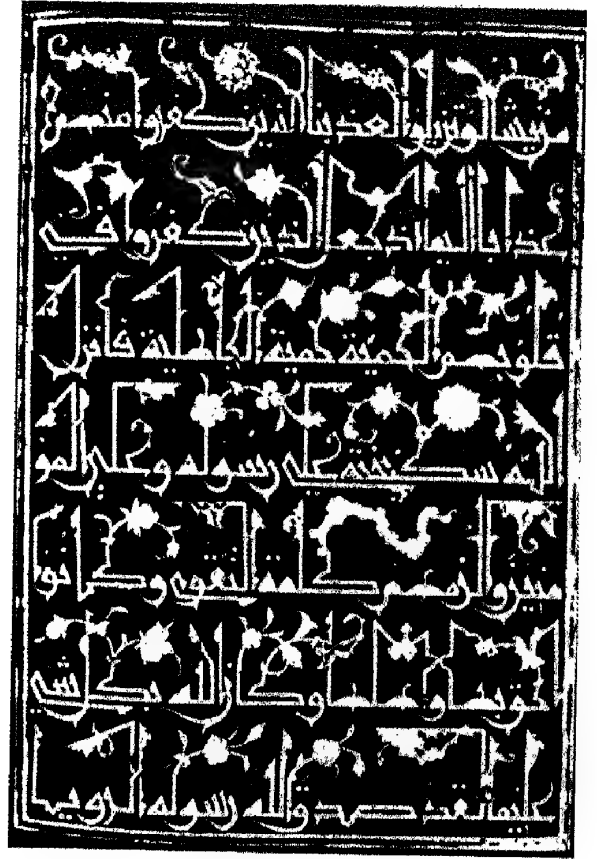 من يشا لو تزيلوا لعذبنا الذين كفروا منهم
عذابا اليما اذ جعل الذين كفروا في
قلوبهم الحمية حمية الجاهلية فانزل
الله سكينته على رسوله وعلى المو
منين والزمهم كلمة التقوى وكانوا
احق بها واهلها وكان الله بكل شي
عليما لقد صدق الله رسوله الرويا